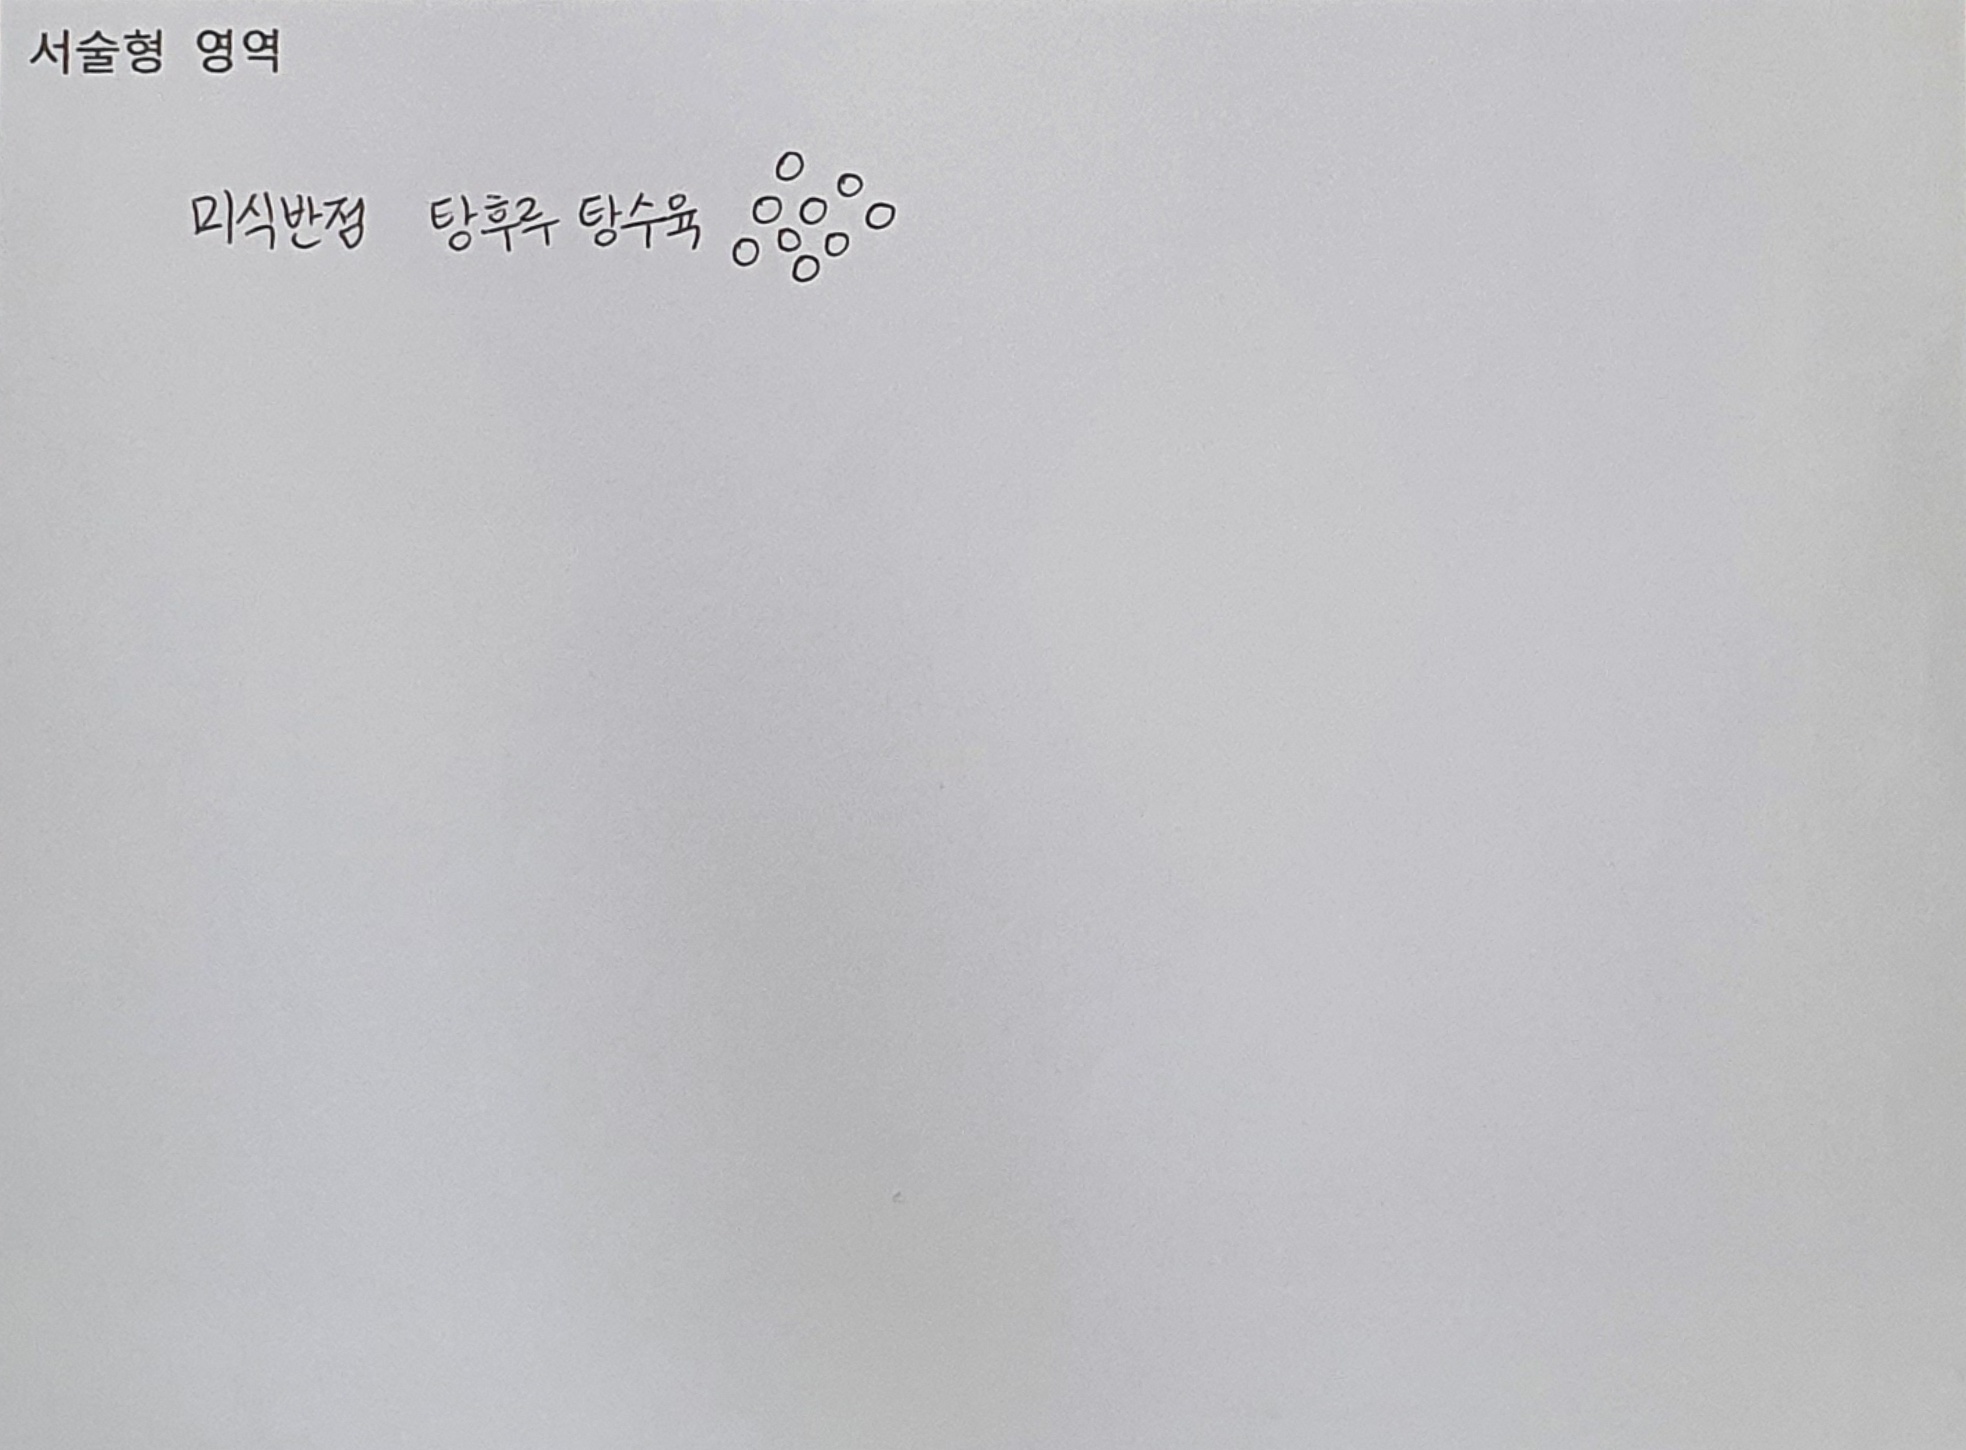 서술형 영역
미식반점 탕후루 탕수육